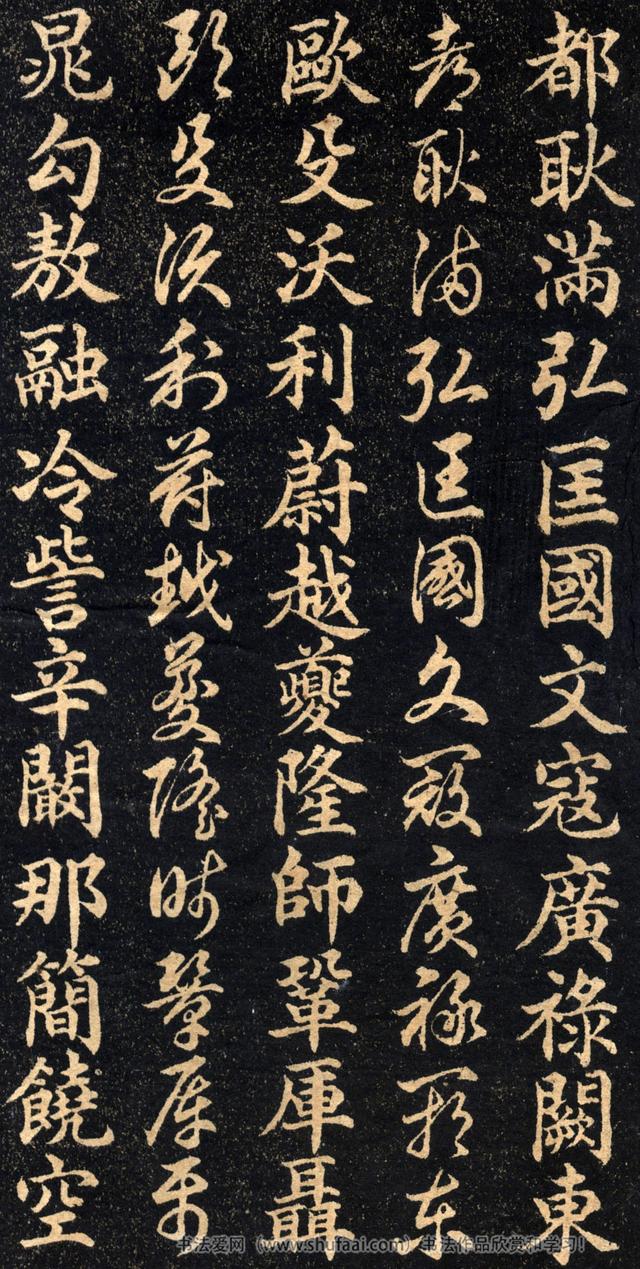 都耿滿弘匡國文寇廣祿闕東
都耿滿弘匡國文寇廣祿闕東
歐殳沃利蔚越夔隆師鞏厙聶
歐殳沃利蔚越夔隆師鞏厙聶
晁勾敖融冷訾辛闞那簡饒空
书法爱网（www.shufaai.com）书法作品欣赏和学习！